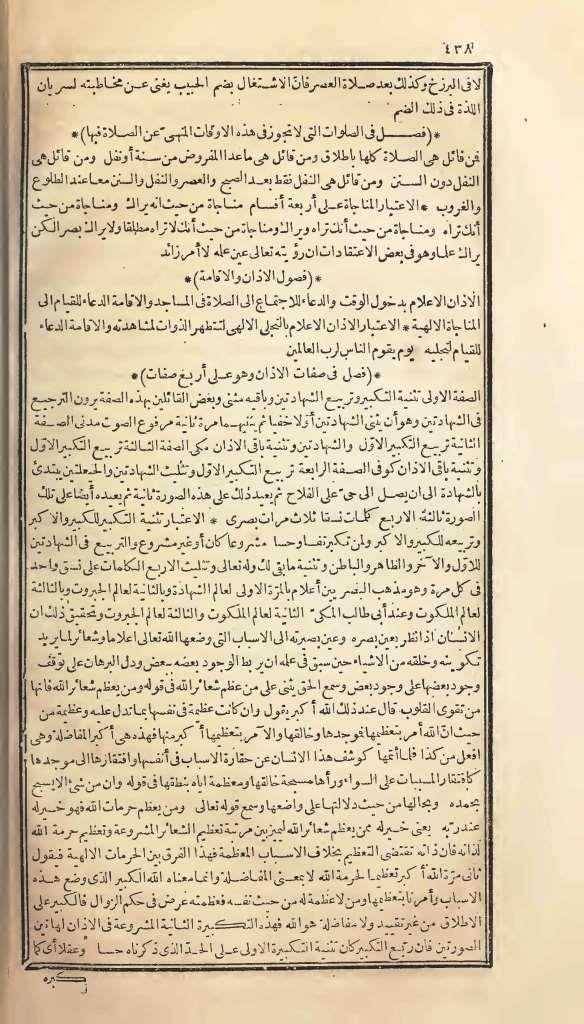 ٤٣٨
لا فى البرزخ وكذلك بعد صلاة العصر فان الاشتغال بضم الحبيب يغنى عن مخاطبته لسريان
اللذة فى ذلك الضم
*(فصل فى الصلوات التى لا تجوز فى هذه الاوقات المنهى عن الصلاة فيها)*
فمن قائل هى الصلاة كلها باطلاق ومن قائل هى ماعدا المفروض من سنة أو نفل ومن قائل هى
النفل دون السنن ومن قائل هى النفل فقط بعد الصبح والعصر والنفل والسنن معا عند الطلوع
والغروب * الاعتبار المناجاة على أربعة أقسام مناجاة من حيث انه يراك ومناجاة من حيث
أنك تراه ومناجاة من حيث أنك تراه ويراك ومناجاة من حيث أنك لا تراه مطلقا ولا يراك بصرا لكن
يراك علما وهو فى بعض الاعتقادات ان رؤيته تعالى عين علمه لا أمر زائد
*(فصول الاذان والاقامة)*
الاذان الاعلام بدخول الوقت والدعاء للاجتماع الى الصلاة فى المساجد والاقامة الدعاء للقيام الى
المناجاة الالهية * الاعتبار الاذان الاعلام بالتجلى الالهى لتتطهر الذوات لمشاهدته والاقامة الدعاء
للقيام لتجليه يوم يقوم الناس لرب العالمين
*(فصل فى صفات الاذان وهو على أربع صفات)*
الصفة الاولى تثنية التكبير وتربيع الشهادتين وباقيه مثنى وبعض القائلين بهذه الصفة يرون الترجيع
فى الشهادتين وهو أن يثنى الشهادتين أولا خفيا ثم يثنيهما مرة ثانية مرفوع الصوت مدنى الصفة
الثانية تربيع التكبير الاول والشهادتين وتثنية باقى الاذان مكى الصفة الثالثة تربيع التكبير الاول
وتثنية باقى الاذان كوفى الصفة الرابعة تربيع التكبير الاول وتثليث الشهادتين والحيعلتين يبتدئ
بالشهادة الى ان يصل الى حى على الفلاح ثم يعيد ذلك على هذه الصورة ثانية ثم يعيده أيضا على تلك
الصورة ثالثة الاربع كلمات نسقا ثلاث مرات بصرى * الاعتبار تثنية التكبير للكبير والاكبر
وتربيعه للكبير والاكبر ولمن تكبر نفسا وحسا مشروعا كان أو غير مشروع والتربيع فى الشهادتين
للاول والآخر والظاهر والباطن وتثنية ما بقى لك وله تعالى وتثليث الاربع الكلمات على نسق واحد
فى كل مرة وهو مذهب البصريين أعلام بالمرة الاولى لعالم الشهادة وبالثانية لعالم الجبروت وبالثالثة
لعالم الملكوت وعند أبى طالب المكى الثانية لعالم الملكوت والثالثة لعالم الجبروت وتحقيق ذلك ان
الانسان اذا نظر بعين بصره وعين بصيرته الى الاسباب التى وضعها الله تعالى اعلاما وشعائر لما يريد
تكوينه وخلقه من الاشياء حين سبق فى علمه ان يربط الوجود بعضه ببعض ودل البرهان على توقف
وجود بعضها على وجود بعض وسمع الحق يثنى على من عظم شعائر الله فى قوله ومن يعظم شعائر الله فانها
من تقوى القلوب قال عند ذلك الله أكبر يقول وان كانت عظيمة فى نفسها بما تدل عليه وعظيمة من
حيث ان الله أمر بتعظيمها فموجدها وخالقها والآمر بتعظيمها أكبر منها فهذه هى أكبر المفاضلة وهى
افعل من كذا فلما أتمها كوشف هذا الانسان عن حقارة الاسباب فى أنفسها وافتقارها الى موجدها
كافتقار المسببات على السواء ورآها مسبحة خالقها ومعظمة اياه بنطقها فى قوله وان من شئ الا يسبح
بحمده وبحالها من حيث دلالتها على واضعها وسمع قوله تعالى ومن يعظم حرمات الله فهو خير له
عند ربه يعنى خير له ممن يعظم شعائر الله ليميز بين مرتبة تعظيم الشعائر المشروعة وتعظيم حرمة الله
لذاته فان ذاته تقتضى التعظيم بخلاف الاسباب المعظمة فهذا الفرق بين الحرمات الالهية فيقول
ثانى مرة الله أكبر تعظيما لحرمة الله لا بمعنى المفاضلة وانما معناه الله الكبير الذى وضع هذه
الاسباب وأمرنا بتعظيمها ومن لا عظمة له من حيث نفسه فعظمته عرض فى حكم الزوال فالكبير على
الاطلاق من غير تقييد ولا مفاضلة هو الله فهذه التكبيرة الثانية المشروعة فى الاذان لهاتين
الصورتين فان ربع التكبير كان تثنية التكبيرة الاولى على الحد الذى ذكرناه حسا وعقلا أى كما
كبره